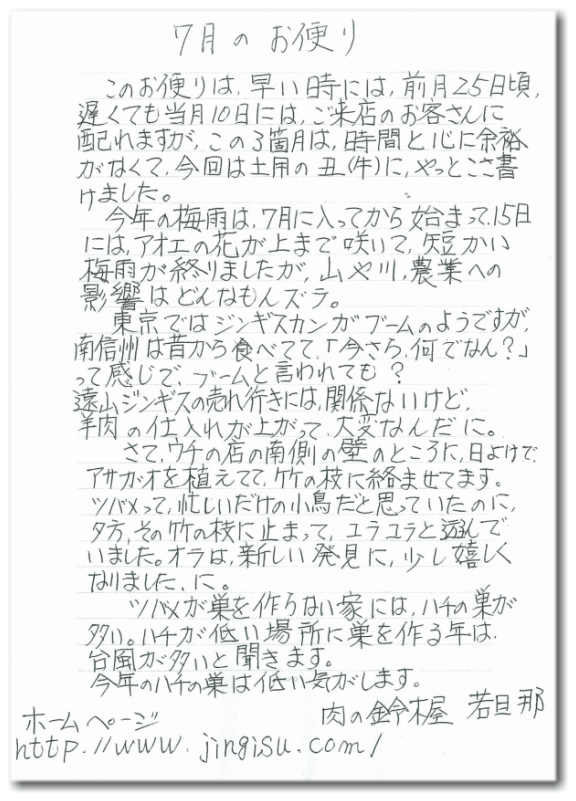 7月のお便り
このお便りは、早い時には、前月25日頃、
遅くても当月10日には、ご来店のお客さんに
配れますが、この3箇月は、時間と心に余裕
がなくて、今回は土用の丑(牛)に、やっとこさ書
けました。
今年の梅雨は、7月に入ってから始まって、15日
には、アオエの花が上まで咲いて、短かい
梅雨が終りましたが、山や川、農業への
影響はどんなもんズラ。
東京ではジンギスカンがブームのようですが、
南信州は昔から食べてて、「今さら、何でなん?」
って感じで、ブームと言われても?
遠山ジンギスの売れ行きには、関係ないけど、
羊肉の仕入れが上がって、大変なんだに。
さて、ウチの店の南側の壁のところに、日よけで、
アサガオを植えてて、竹の枝に絡ませてます。
ツバメって、忙しいだけの小鳥だと思っていたのに、
夕方、その竹の枝に止まって、ユラユラと遊んで
いました。オラは、新しい発見に、少し嬉しく
なりました、に。
ツバメが巣を作らない家には、ハチの巣が
多い。ハチが低い場所に巣を作る年は、
台風が多いと聞きます。
今年のハチの巣は低い気がします。
肉の鈴木屋 若旦那
ホームページ
http://www.jingisu.com/